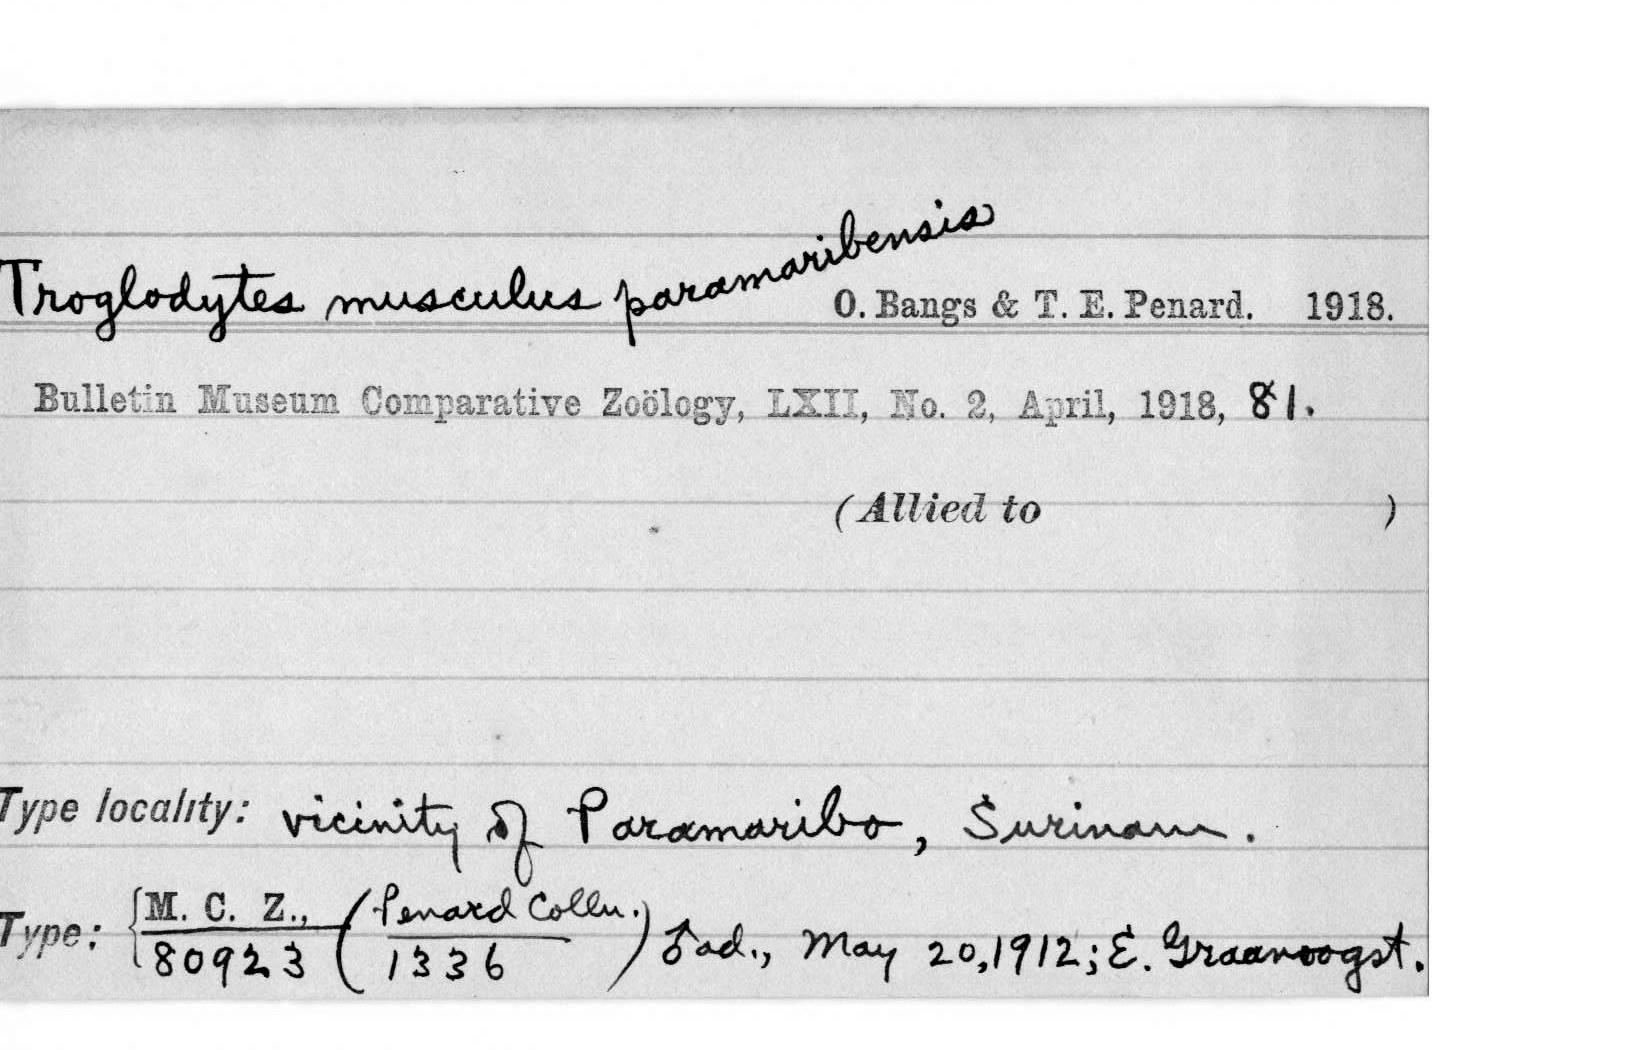 Troglodytes musculus paramaribensis O. Bangs & T. E. Penard. 1918.
Bulletin Museum Comparative Zoölogy, LXII, No. 2, April, 1918, 81.
(Allied to )
Type locality: vicinity of Paramaribo, Surinam.
Type: { M. C. Z., / 80923 (Penard Colln. / 1336) ♂ ad., May 20, 1912; E. Graanoogst.